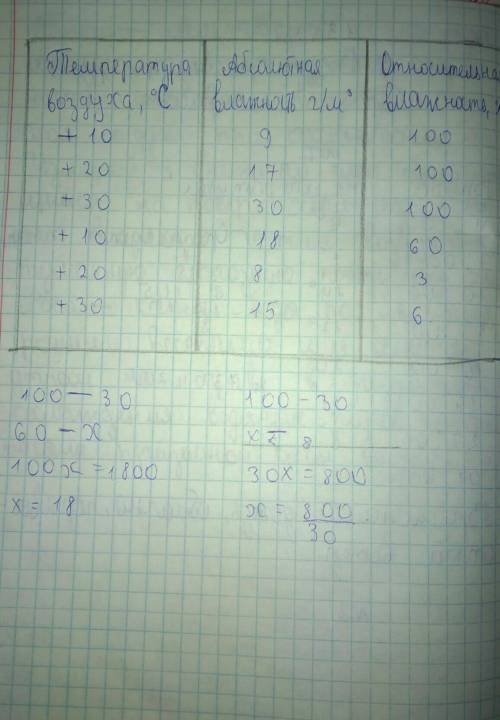 Температура Абсолютная Относительна
воздуха, °C влажность г/м³ влажность,
+ 10 9 100
+ 20 17 100
+ 30 30 100
+ 10 18 60
+ 20 8 3
+ 30 15 6
100 — 30 100 - 30
60 — x x - 8
100x = 1800 30x = 800
x = 18 x = 800
30